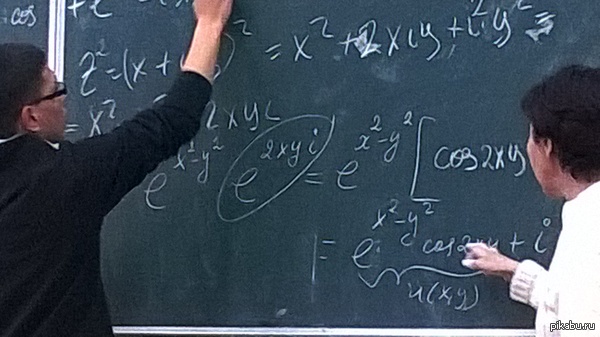 cos
z² = (x + )² = x² + 2xiy + i²y² =
= x² 2xyi
e^(x²-y²) e^(2xyi) = e^(x²-y²) [cos2xy
= e^(x²-y²) cos2xy + i
u(x,y)
pikabu.ru